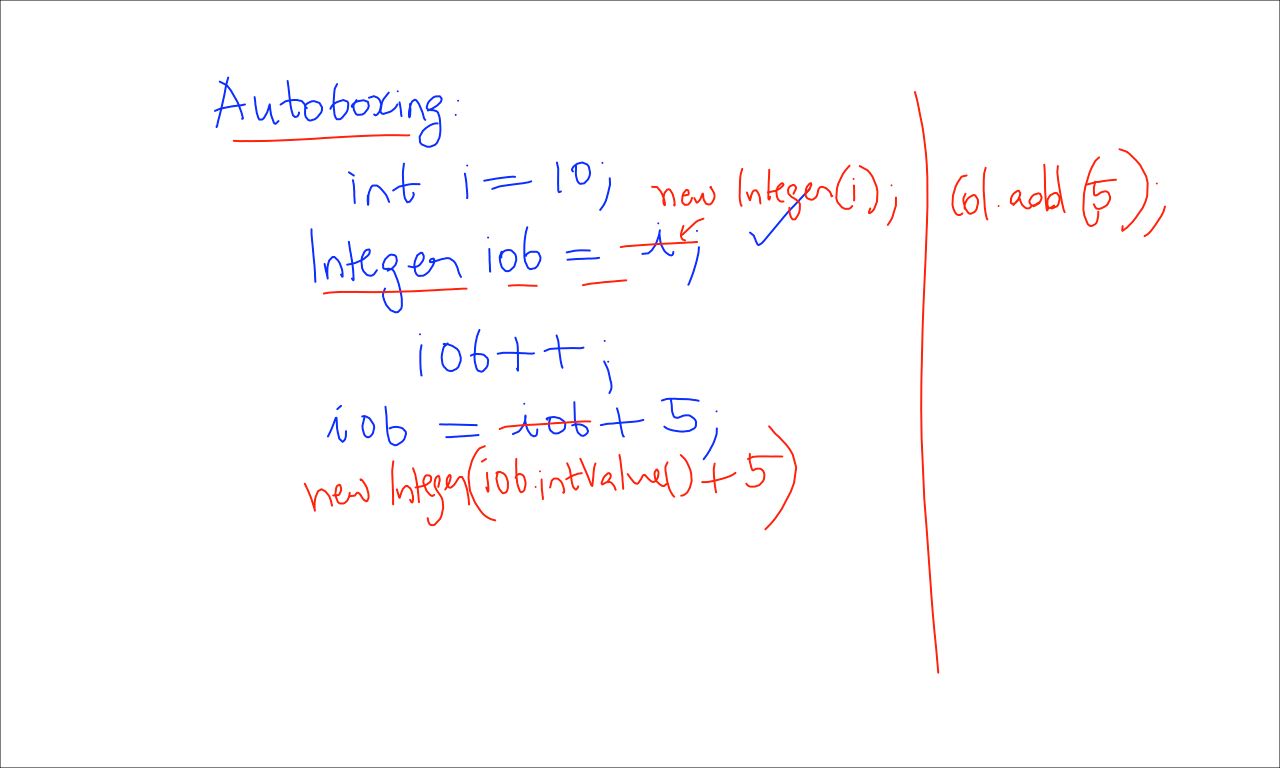 Autoboxing:
int i = 10;
new Integer(i);
Integer iob = i;
iob++;
iob = iob + 5;
new Integer(iob.intValue() + 5)
Col.add(5);